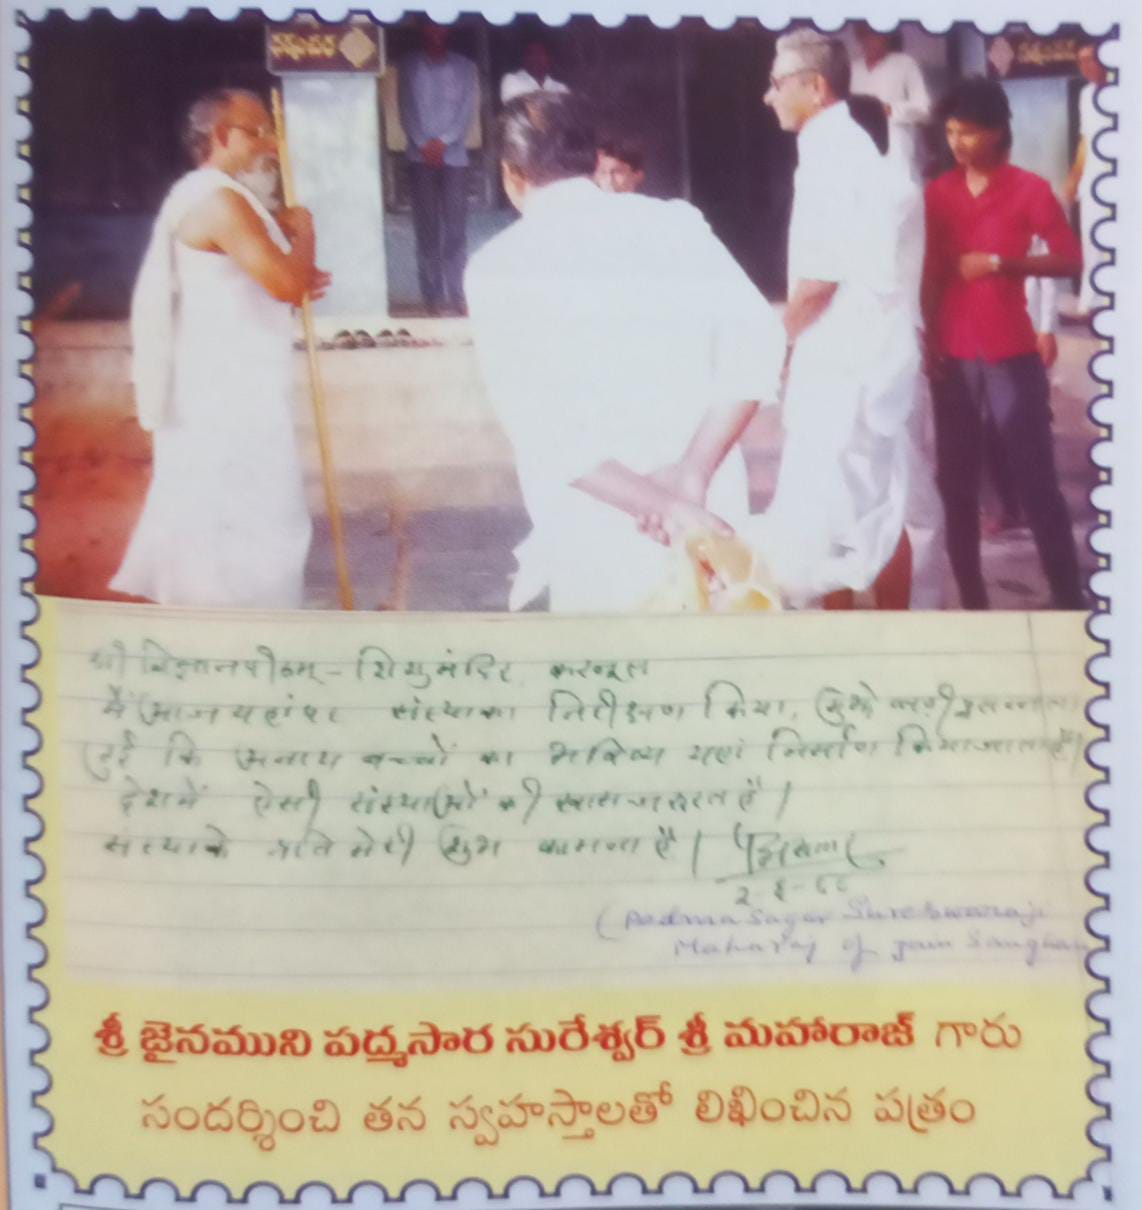 శ్రీ విజ్ఞానపీఠం
श्री विज्ञानपीठम् - शिशुमंदिर, करनूल
मैं आज यहांपर संस्थाका निरीक्षण किया, मुझे बड़ी प्रसन्नता
हुई कि अनाथ बच्चों का भविष्य यहां निर्माण किया जाता है।
देशमें ऐसी संस्थाओं की खास जरूरत है।
संस्थाके प्रति मेरी शुभ कामना है।
(Padma Sagar Sureswaraji
Maharaj of Jain Sangham
శ్రీ జైనముని పద్మసార సురేశ్వర్ శ్రీ మహారాజ్ గారు
సందర్శించి తన స్వహస్తాలతో లిఖించిన పత్రం